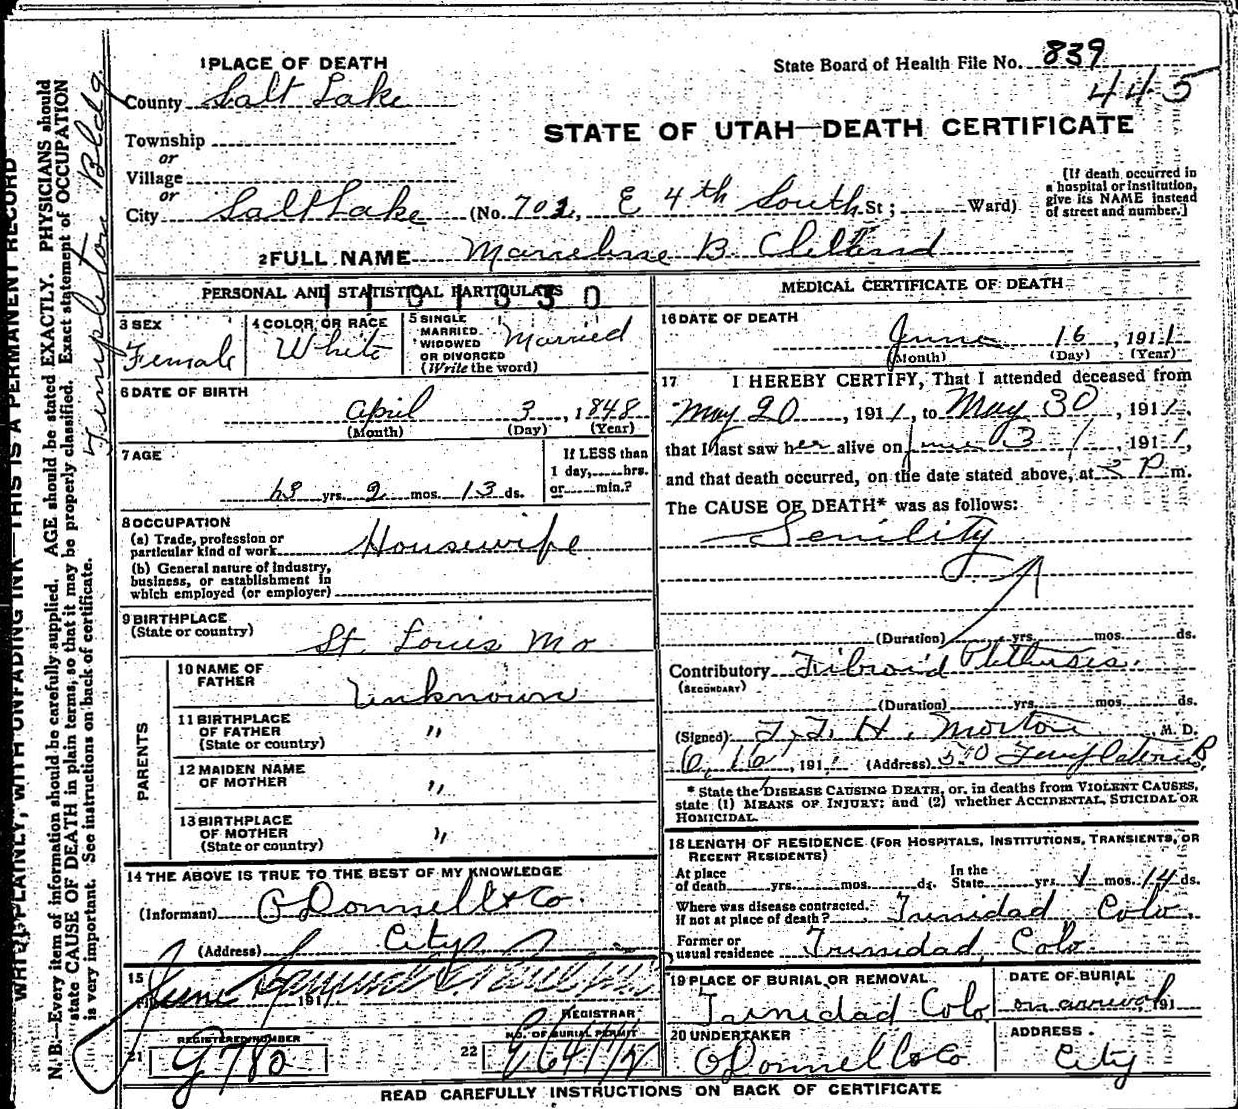 1 PLACE OF DEATH
State Board of Health File No. 839
445
County Salt Lake
STATE OF UTAH—DEATH CERTIFICATE
Township
or
Village
or
City Salt Lake (No. 702, E 4th South St; Ward)
[If death occurred in a hospital or institution, give its NAME instead of street and number.]
2 FULL NAME B.
PERSONAL AND STATISTICAL PARTICULARS
1101030
3 SEX
Female
4 COLOR OR RACE
White
5 SINGLE MARRIED WIDOWED OR DIVORCED (Write the word)
Married
6 DATE OF BIRTH
April 3, 1848
(Month) (Day) (Year)
7 AGE
63 yrs 2 mos 13 ds.
If LESS than 1 day, hrs. or min.?
8 OCCUPATION
(a) Trade, profession or particular kind of work Housewife
(b) General nature of industry, business, or establishment in which employed (or employer)
9 BIRTHPLACE
(State or country)
St. Louis Mo
PARENTS
10 NAME OF FATHER Unknown
11 BIRTHPLACE OF FATHER (State or country) "
12 MAIDEN NAME OF MOTHER "
13 BIRTHPLACE OF MOTHER (State or country) "
14 THE ABOVE IS TRUE TO THE BEST OF MY KNOWLEDGE
(Informant) O'Donnell & Co.
(Address) City
15
June 191
REGISTRAR
21 REGISTERED NUMBER
G 782
22 NO. OF BURIAL PERMIT
MEDICAL CERTIFICATE OF DEATH
16 DATE OF DEATH
June 16, 1911
(Month) (Day) (Year)
17 I HEREBY CERTIFY, That I attended deceased from
May 20, 1911, to May 30, 1911,
that I last saw her alive on June 3, 1911,
and that death occurred, on the date stated above, at P m.
The CAUSE OF DEATH* was as follows:
Senility
(Duration) yrs. mos. ds.
Contributory Fibroid
(SECONDARY)
(Duration) yrs. mos. ds.
(Signed) H. Morton M. D.
6, 16, 191 (Address) 510 Templeton B.
* State the DISEASE CAUSING DEATH, or, in deaths from VIOLENT CAUSES, state (1) MEANS OF INJURY; and (2) whether ACCIDENTAL, SUICIDAL OR HOMICIDAL.
18 LENGTH OF RESIDENCE (FOR HOSPITALS, INSTITUTIONS, TRANSIENTS, OR RECENT RESIDENTS)
At place of death yrs. mos. ds. In the State yrs. 1 mos. 14 ds.
Where was disease contracted, if not at place of death? Trinidad, Colo.
Former or usual residence Trinidad, Colo
19 PLACE OF BURIAL OR REMOVAL
Trinidad Colo
DATE OF BURIAL
on arrival 191
20 UNDERTAKER
O'Donnell & Co
ADDRESS
City
READ CAREFULLY INSTRUCTIONS ON BACK OF CERTIFICATE
WRITE PLAINLY, WITH UNFADING INK—THIS IS A PERMANENT RECORD
N. B.—Every item of information should be carefully supplied. AGE should be stated EXACTLY. PHYSICIANS should
state CAUSE OF DEATH in plain terms, so that it may be properly classified. Exact statement of OCCUPATION
is very important. See instructions on back of certificate.
Templeton Bldg.